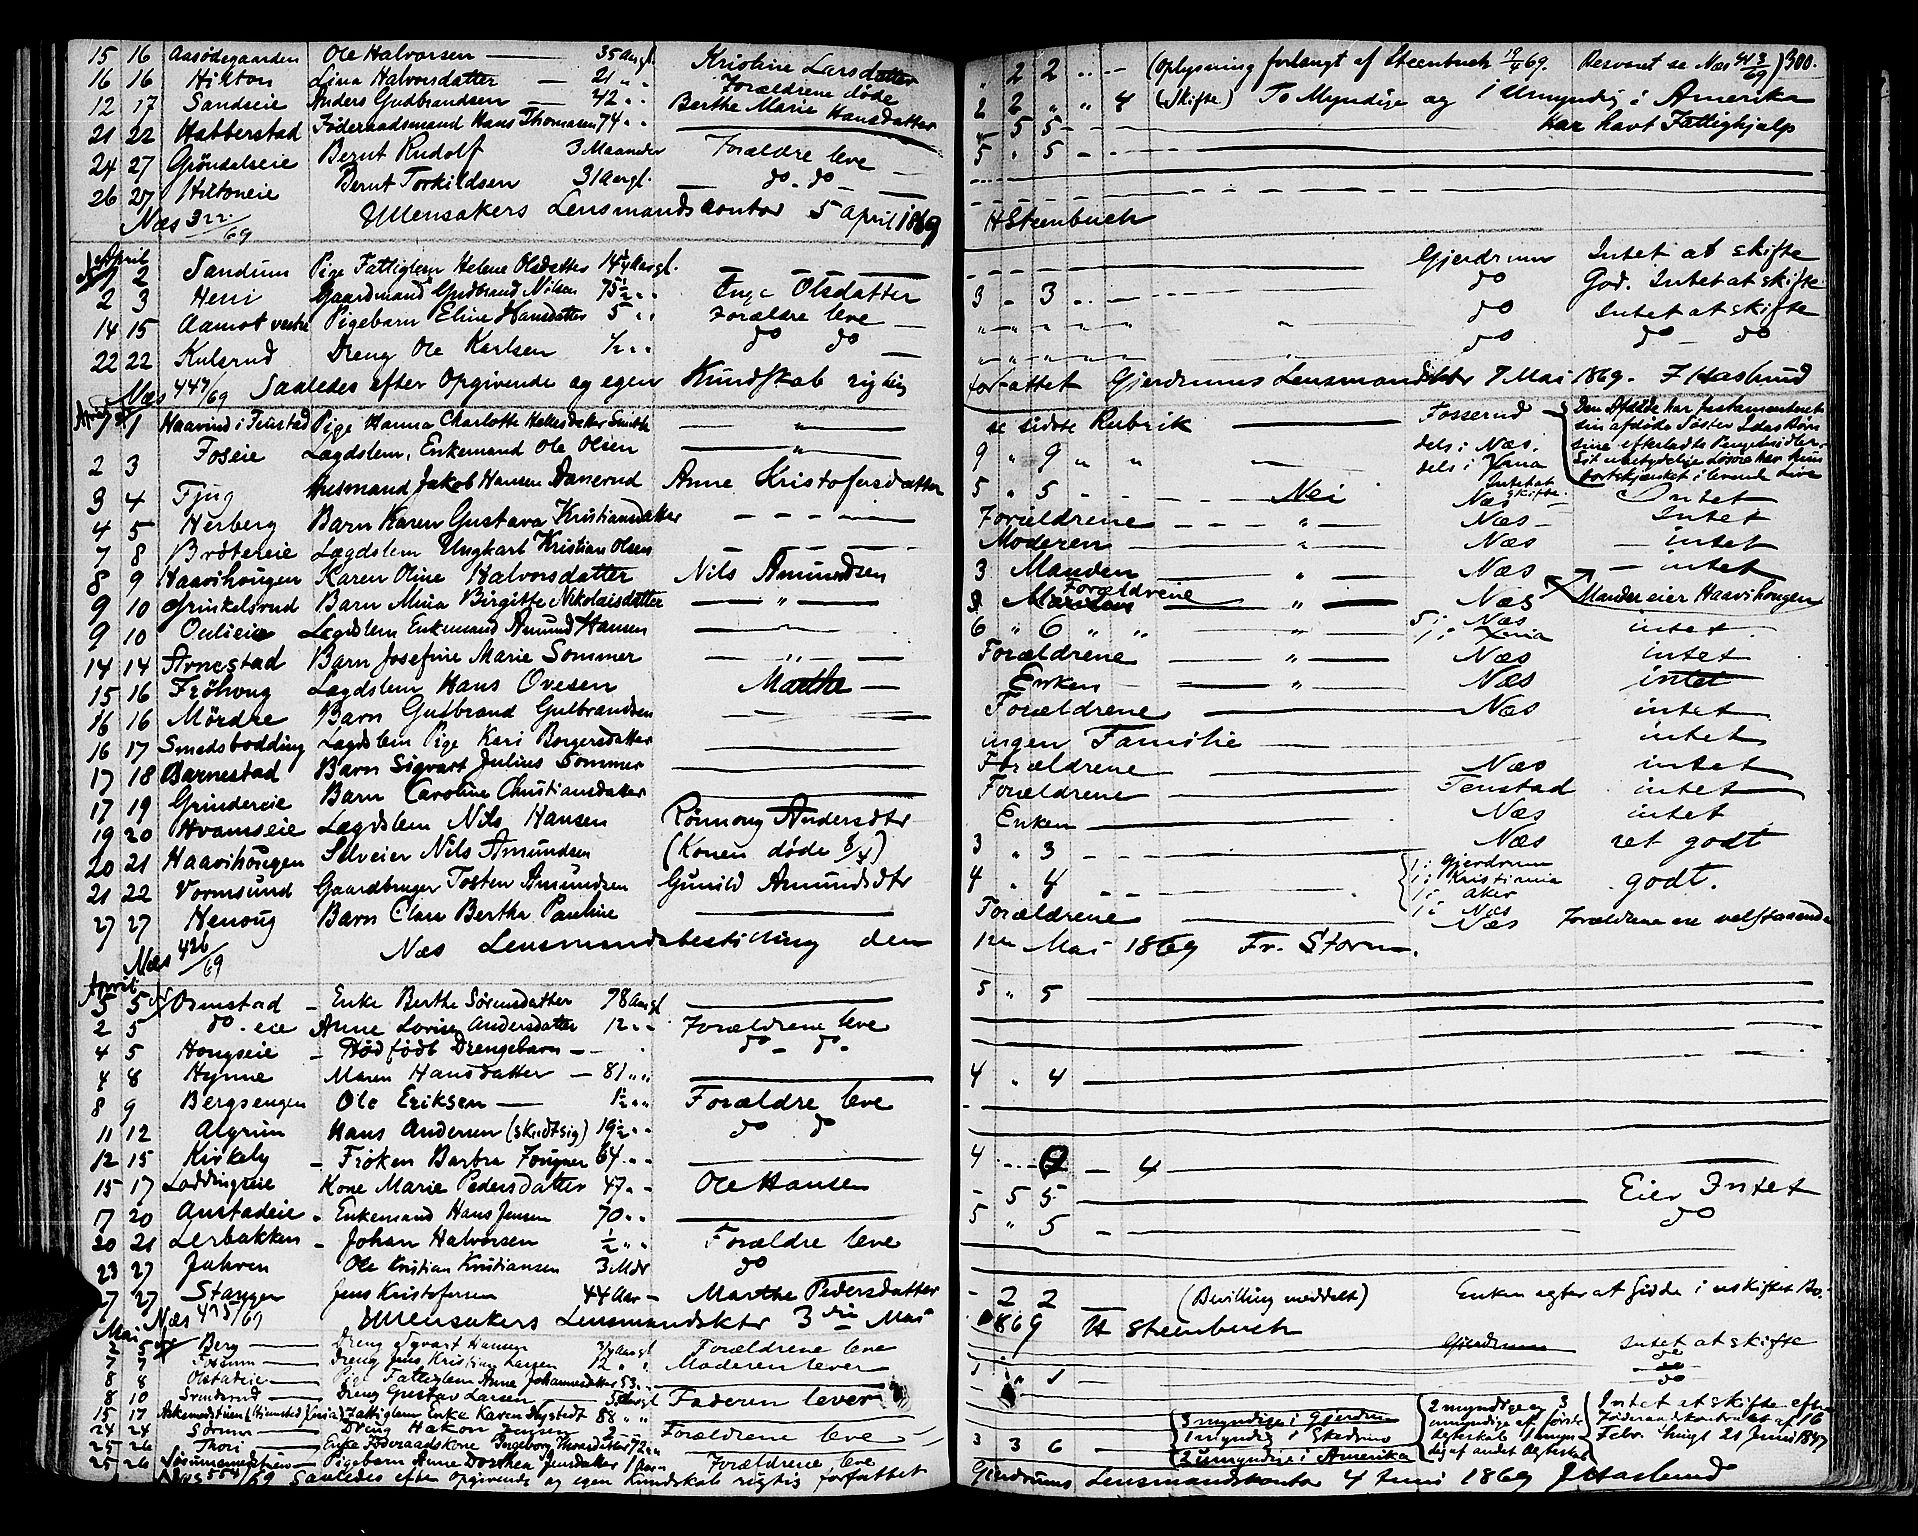 15 16 Aasödegaarden Ole Halvorsen — 35 Aargl. Kristine Larsdatter
16 16 Hilton Lina Halvorsdatter — 21 " " Forældrene døde
12 17 Sandseie Anders Gudbrandsen — 42 " " Berthe Marie Hansdatter
21 22 Habberstad Föderaadsmand Hans Thomasen 74 " "
24 27 Gröndalseie Bernt Rudolf 3 Maaneder Forældre leve
26 27 Hiltoneie Bernt Torkildsen 31 Aargl. — do - do —
Næs 322/69 Ullensakers Lensmandskontor 5 April 1869
April
1 2 Sandum Pige Fattiglem Helene Olsdatter 14¼ Aargl.
2 3 Heni Gaardmand Gudbrand Nilsen 75½ " " Inge Olsdatter
14 15 Aamot vestre Pigebarn Eline Hansdatter 5 " " Forældre leve —
22 22 Kulsrud Dreng Ole Karlsen ½ " " do do —
Næs 447/69 Saaledes efter Opgivende og egen Kundskab rigtig
April
1 1 Haavind i Fenstad Pige Hanna Charlotte Smith — " —
2 3 Foseie Lægdslem, Enkemand Ole Olsen — " —
3 4 Fjug Husmand Jakob Hansen Aanerud Anne Kristofersdatter
4 5 Herberg Barn Karen Gustava Kristiansdatter
7 8 Bråtereie Lægdslem Ungkarl Kristian Olsen
8 9 Haavihougen Karen Oline Halvorsdatter Nils Amundsen
9 10 Grinkelsrud Barn Mina Birgitte Nikolaisdatter — " —
9 10 Oulieie Lægdslem Enkemand Amund Hansen
14 14 Arnestad Barn Josefine Marie Sommer — " —
15 16 Fröhoug Lægdslem Hans Ovesen Marthe —
16 16 Mördre Barn Gulbrand Gulbrandsen
16 17 Smedsbodding Lægdslem Pige Kari Borgersdatter
17 18 Barnestad Barn Sigvart Julius Sommer
17 19 Grindereie Barn Caroline Christiansdatter
19 20 Hvamseie Lægdslem Nils Hansen Rönnoug Andersdtr
20 21 Haavihougen Selveier Nils Amundsen (Konen döde 8/4)
21 22 Vormsund Gaardbruger Tosten Amundsen Gunild Amundsdtr
27 27 Henoug Barn Clara Bertha Pauline
Næs 426/69 Næs Lensmandsbestilling den
April
5 5 Onustad — Enke Berthe Sörensdatter 78 Aargl
2 5 do. eie Anne Lovise Andersdatter 12 " " Forældrene leve
4 5 Hougseie — Dödfödt Drengebarn — do - do -
4 8 Hynne Maren Hansdatter — 81 " "
8 9 Bergsengen Ole Eriksen — 1½ " " Forældre leve
11 12 Algrim Hans Andersen 19½ " " do do
12 15 Kirkely — Fröken Barbra 64 " "
15 17 Loddingseie Kone Marie Pedersdatter 47 " " Ole Hansen
17 20 Austadeie — Enkemand Hans Jensen 70 " "
20 21 Lerbakken — Johan Halvorsen ½ " " Forældre leve
23 27 Jahren Ole Kristian Kristiansen 3 Mdr do
27 27 Stanger Jens Kristofersen 44 Aar — Marthe Pedersdatter
Næs 475/69 Ullensakers Lensmandsktr 3die Mai
Mai
2 5 Berg — Dreng Sigvart Hansen ¾ Aargl Forældrene leve
7 7 — Dreng Jens Kristian Larsen 12 " " Moderen lever
8 8 Olstadeie — Pige Fattiglem Anne Johannesdatter 53 " "
8 10 — Dreng Gustav Larsen — Aargl Faderen lever
15 17 Fattiglem Enke Karen Nystedt 88 " "
24 24 Sörum — Dreng Hakon Jensen 2 — Forældrene leve
25 26 Thori — Enke Föderaadskone Ingeborg Thorsdatter 72 " "
25 26 Pigebarn Anne Dorthea Jensdatter 1 Aar Forældrene leve
Næs 554/69 Saaledes efter Opgivende og egen Kundskab rigtig forfattet
" 2 2 " " — (Oplysning forlangt af Steenbuch 19/4 69. Besvaret se Næs 413/69) 300.
2 2 " " 4 (Skifte) To Myndige og 1 Umyndig i Amerika
5 5 — Har havt Fattighjælp
5 " 5 —
H Steenbuch
Gjerdrum Intet at skifte
3 — 3 do God. Intet at skifte
do Intet at skifte
do do — do
forfattet Gjerdrums Lensmandsktr 7 Mai 1869. F Haslund
se sidste Rubrik Fosserud Den Afdöde har testamenteret sin afdöde Söster Idas Börn sine efterladte Pengemidler. Sit ubetydelige Lösöre har hun bortskjænket i levende Live
9 " 9 " " dels i Næs. dels i Xania Intet at skifte.
5 " 5 Nei Næs Intet
Forældrene — " — Næs — Intet
Moderen — " — Næs — intet
3 Manden — " — Næs — intet
Forældrene — " — Næs Manden eier Haavihougen
6 " 6 " " 5 i Næs 1 i Xania intet
Forældrene — " — Næs intet
Enken — " — Næs intet
Forældrene — Næs intet
ingen Familie — intet
Forældrene — Næs intet
Forældrene — Fenstad intet
Enken — Næs intet
3 " 3 Næs ret godt
4 " 4 1 i Gjerdrum 1 i Kristiania 1 i Aker 1 i Næs godt.
Forældrene — Næs Forældrene ere velstaaende
1ste Mai 1869 Fr. Storm.
5 " 5
4 " 4
4 — 4
- 5 5 Eier Intet
5 " 5 — do
- 2 2 — (Bevilling meddelt) Enken agter at sidde i uskiftet Bo.
1869 H Steenbuch
Gjerdrum Intet at skifte
do
1 " 1 do
3 3 6 — 3 myndige i Gjerdrum 1 myndig i Skedsmo 2 umyndige i Amerika
2 myndige og 3 umyndige af förste Ægteskab 1 myndig af andet Ægteskab
Intet at skifte efter Föderaadskontrakt af 16 Febr. tingl. 21 Juni 1847
Gjerdrums Lensmandskontor 4 Juni 1869 F Haslund